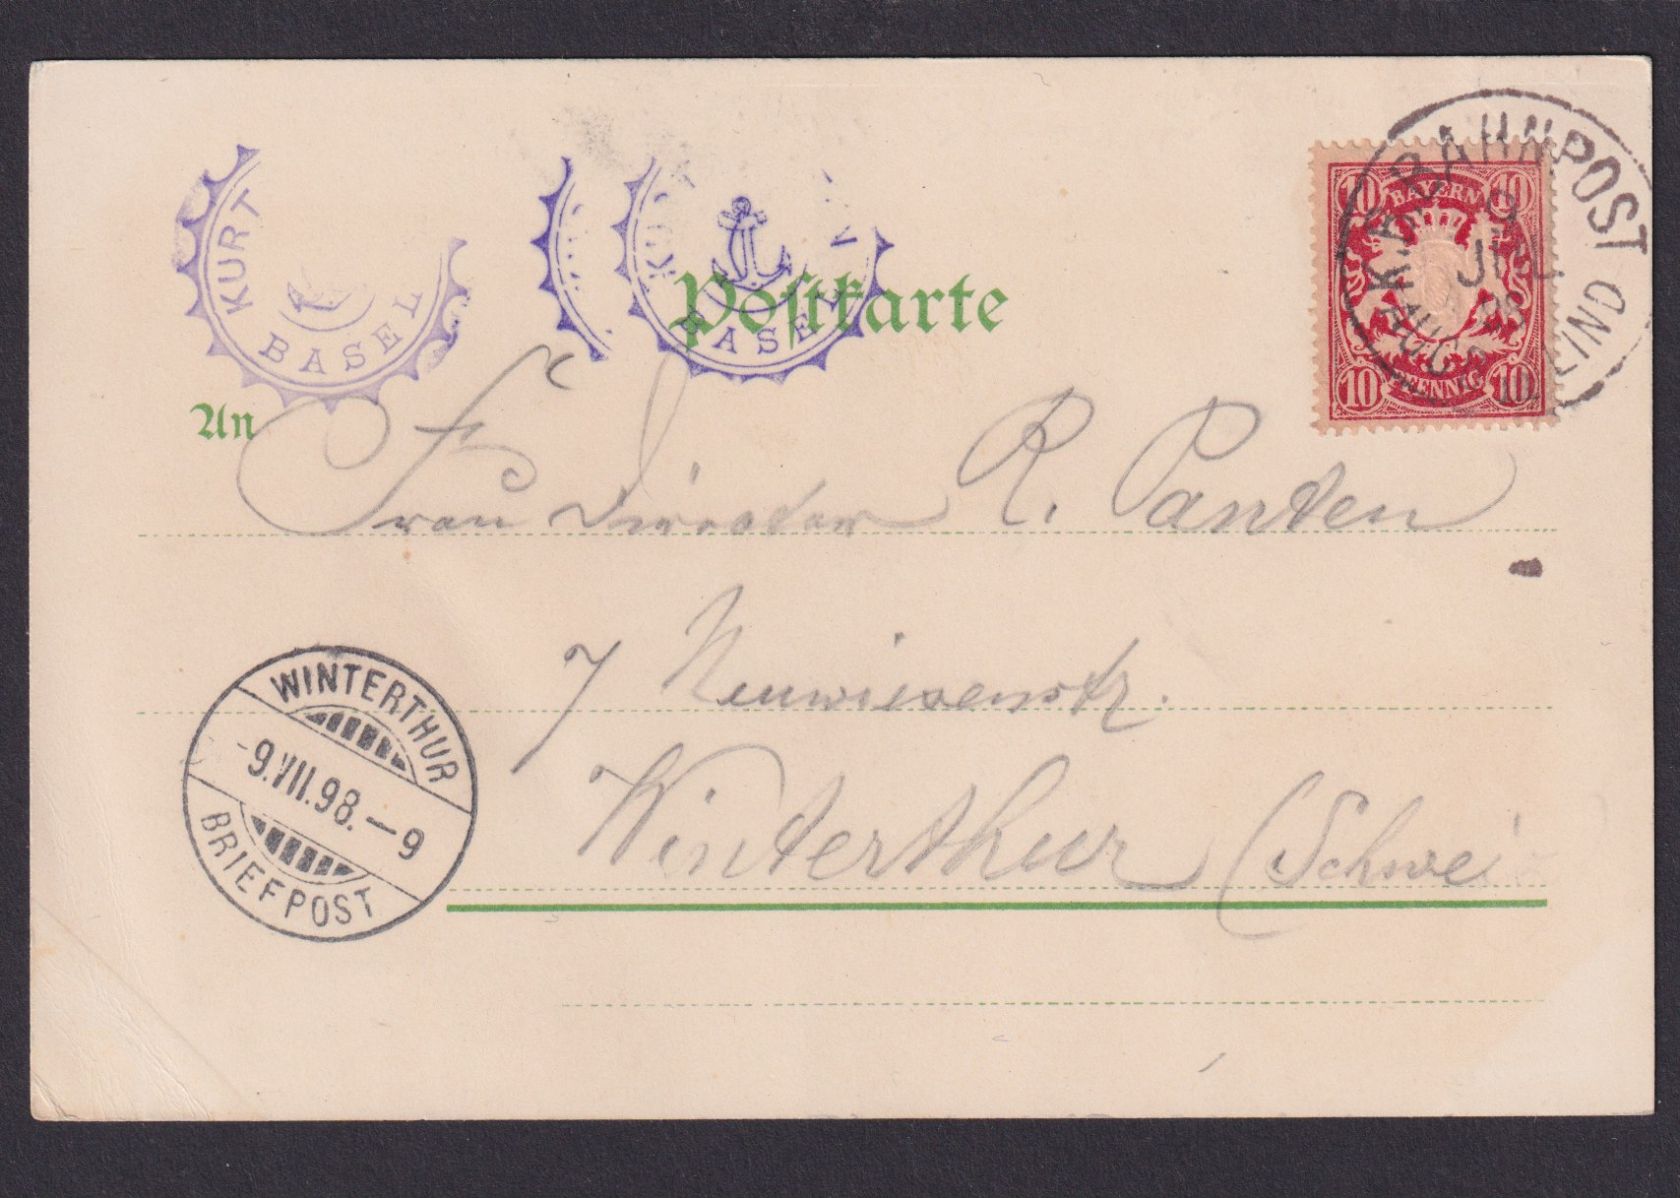 KURT BASEL
BASEL
Postkarte
An
K. BAY. BAHNPOST
LIND
9 JUL 98
10 BAYERN 10
10 PFENNIG 10
Frau Director R. Panten
7 Neuwiesenstr.
Winterthur (Schwei
WINTERTHUR
-9.VII.98.—9
BRIEFPOST